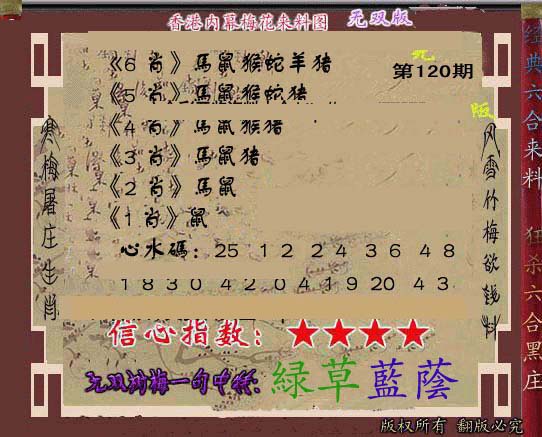 香港内幕梅花来料图 无双版
第120期
《6 肖》馬鼠猴蛇羊猪
《5 肖》馬鼠猴蛇猪
《4 肖》馬鼠猴猪
《3 肖》馬鼠猪
《2 肖》馬鼠
《1 肖》鼠
心水碼：25 12 24 36 48
18 30 42 04 19 20 43
信心指数：★★★★
无双狗梅一句中特：緑草藍蔭
寒梅屠庄生肖
风雪竹梅欲钱料
经典六合来料 狂杀六合黑庄
版权所有 翻版必究